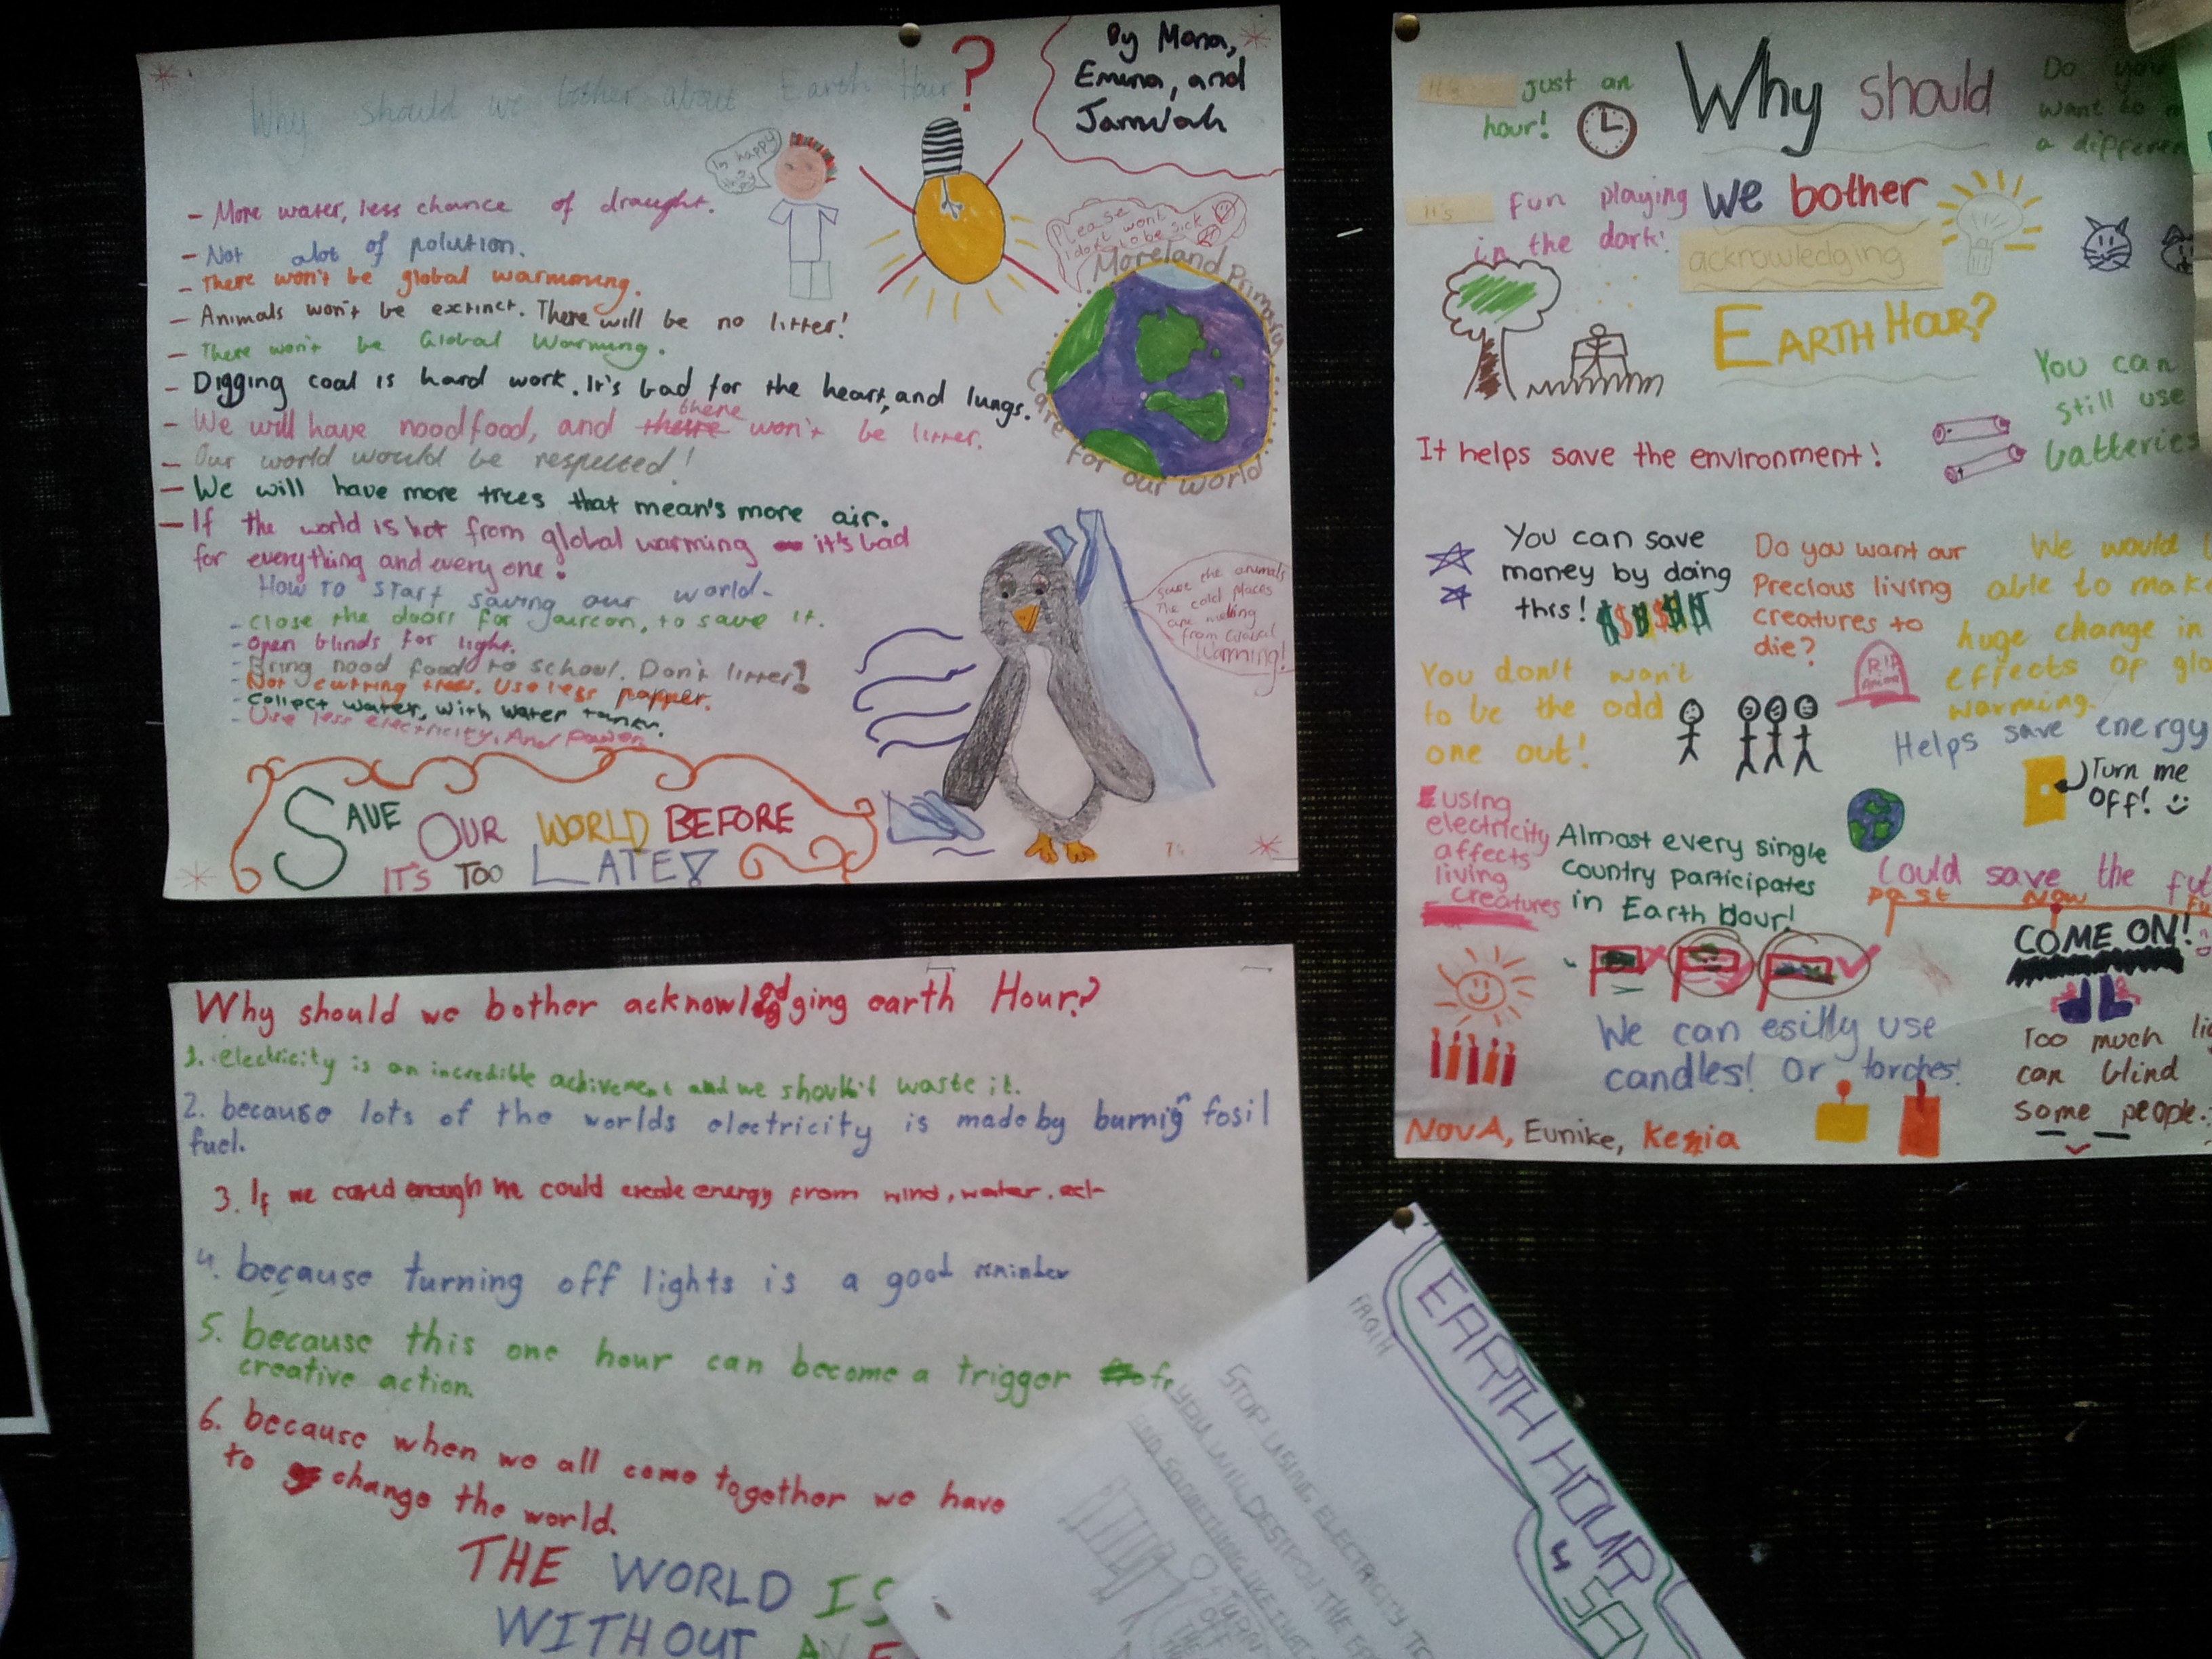 Why should we bother about Earth Hour ?
By Mona,
Emina, and
Jamilah
- More water, less chance of draught.
- Not alot of polution.
- There won't be global warmoning.
- Animals won't be extinct. There will be no litter!
- There won't be Global Warming.
- Digging coal is hard work. It's bad for the heart, and lungs.
- We will have nood food, and there won't be litter.
- Our world would be respected!
- We will have more trees that mean's more air.
- If the world is hot from global warming it's bad
for everything and every one!
How to start saving our world-
- Close the doors for aircon, to save it.
- Open blinds for light.
- Bring nood food to school. Don't litter!
- Not cutting trees. Use less papper.
- Collect water, with water tanks.
- Use less electricity. And power
Im happy
Please
I dont wont
to be sick
Moreland Primary
Care for our world
save the animals
The cold places
are
from Global
Warming!
SAVE OUR WORLD BEFORE
IT'S TOO LATE!
It's just an
hour!
Why should
we bother
acknowledging
EARTH HOUR?
Do you
want to
a
It's fun playing
in the dark!
You can
still use
batteries
It helps save the environment!
You can save
money by doing
this! $$$$$
Do you want our
Precious living
creatures to
die?
RIP
We would
able to make
huge change in
effects of
warming.
You don't won't
to be the odd
one out!
Helps save energy
Turn me
off!
using
electricity
affects
living
creatures
Almost every single
country participates
in Earth Hour!
Could save the
past Now
COME ON!
We can esilly use
candles! Or torches!
Too much
can blind
some people.
NovA, Eunike, Kezia
Why should we bother acknowledging earth Hour?
1. electricity is an incredible achivement and we should't waste it.
2. because lots of the worlds electricity is made by burnig fosil
fuel.
3. If we cared enough we could create energy from wind, water, ect
4. because turning off lights is a good reminder
5. because this one hour can become a trigger
creative action.
6. because when we all come together we have
to change the world.
THE WORLD IS
WITHOUT AN
EARTH HOUR
4
STOP USING ELECTRICITY
YOU WILL DESTROY THE
SOMETHING LIKE THAT
TURN
OFF
THE